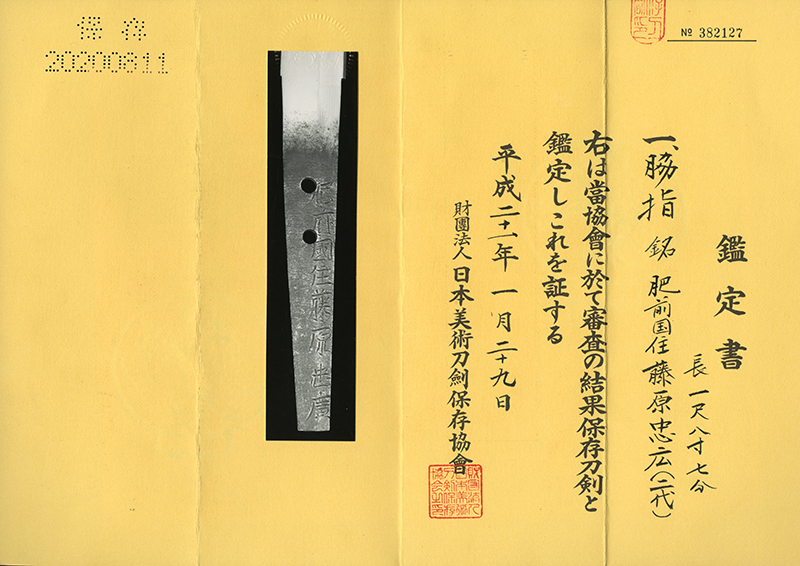 № 382127
鑑定書
長 一尺八寸七分
一、脇指 銘 肥前国住藤原忠広(二代)
右は當協會に於て審査の結果保存刀剣と
鑑定しこれを証する
平成二十一年一月二十九日
財團法人 日本美術刀劍保存協會
肥前國住藤原忠廣
保存
20200811